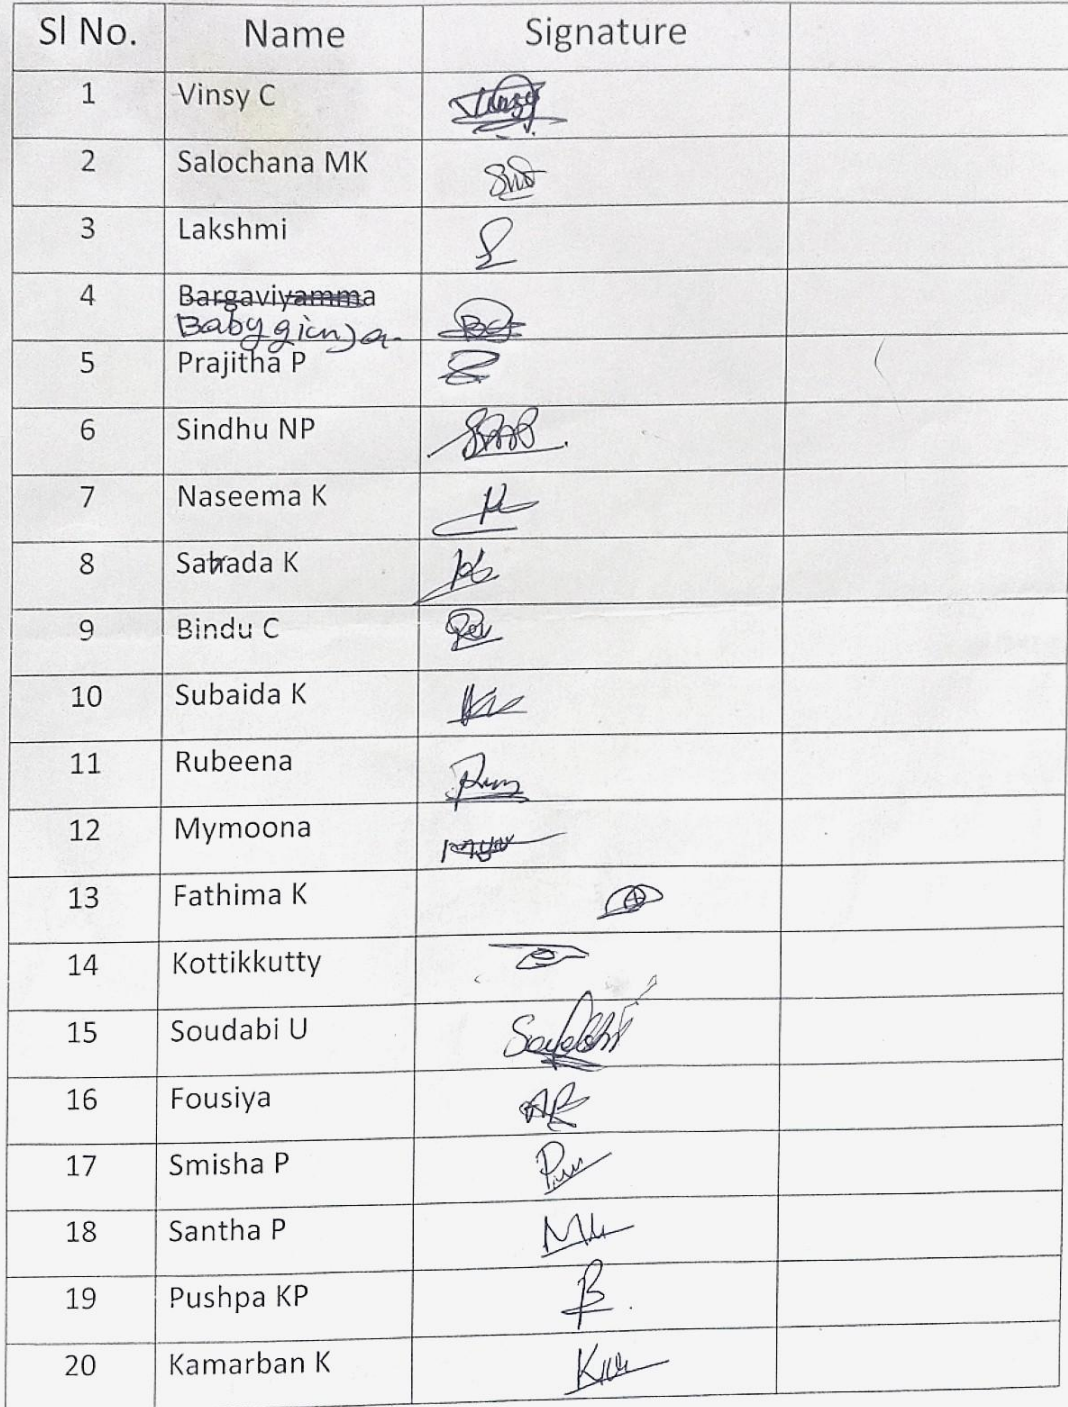 Sl No. Name Signature
1 Vinsy C Vinsy
2 Salochana MK
3 Lakshmi
4 Bargaviyamma
Babygirija
5 Prajitha P
6 Sindhu NP
7 Naseema K
8 Sarada K
9 Bindu C
10 Subaida K
11 Rubeena
12 Mymoona
13 Fathima K
14 Kottikkutty
15 Soudabi U Soudabi
16 Fousiya
17 Smisha P
18 Santha P
19 Pushpa KP
20 Kamarban K